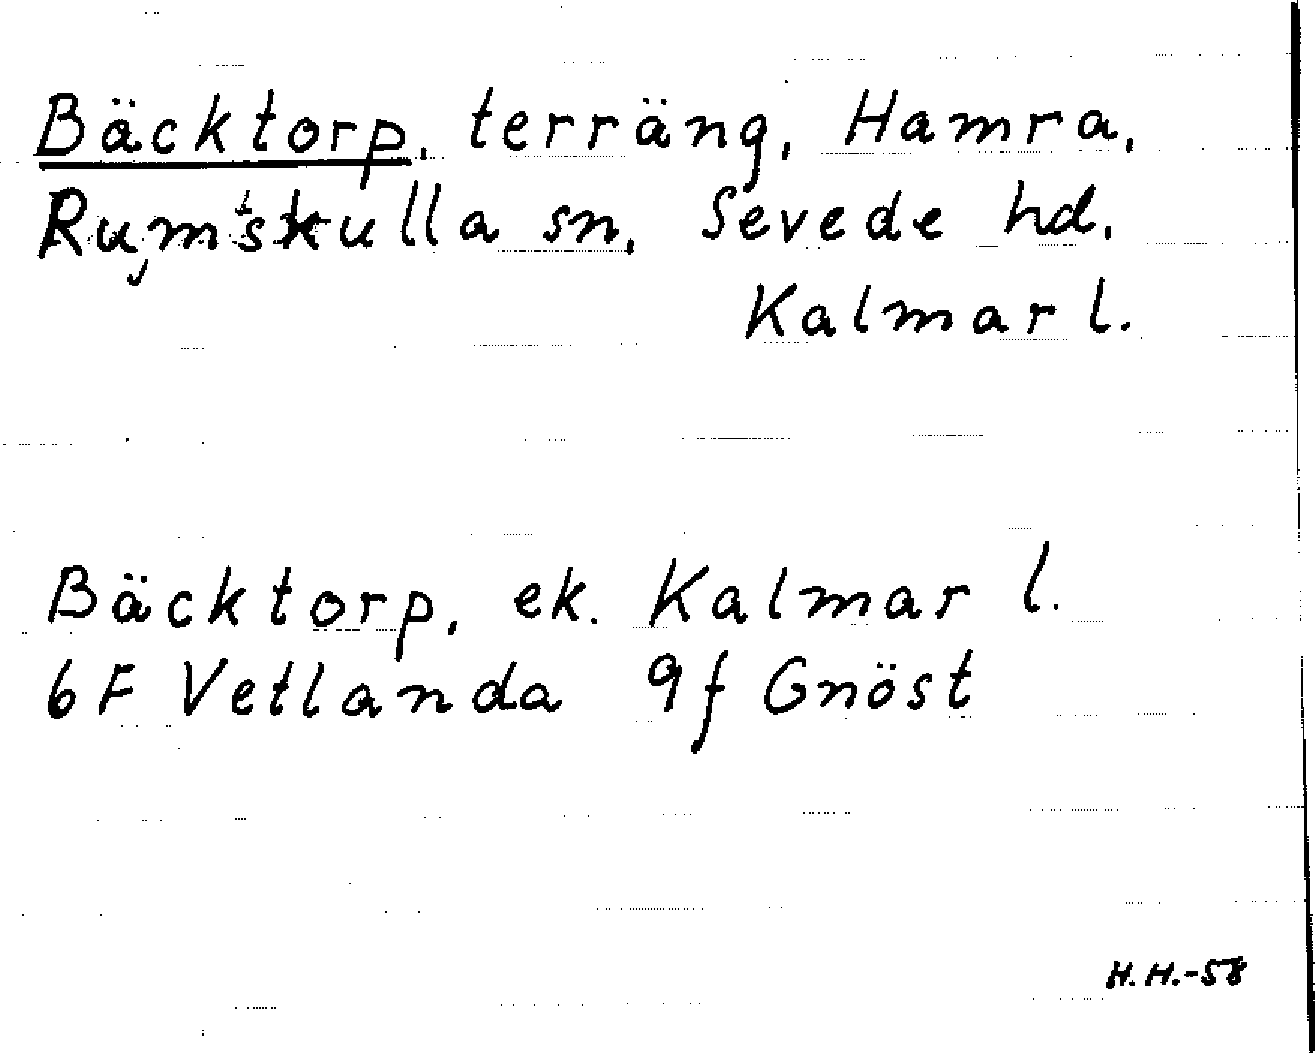 Bäcktorp, terräng, Hamra,
Rumskulla sn, Sevede hd,
Kalmar l.
Bäcktorp, ek. Kalmar l.
6F Vetlanda 9f Gnöst
H.H.-58